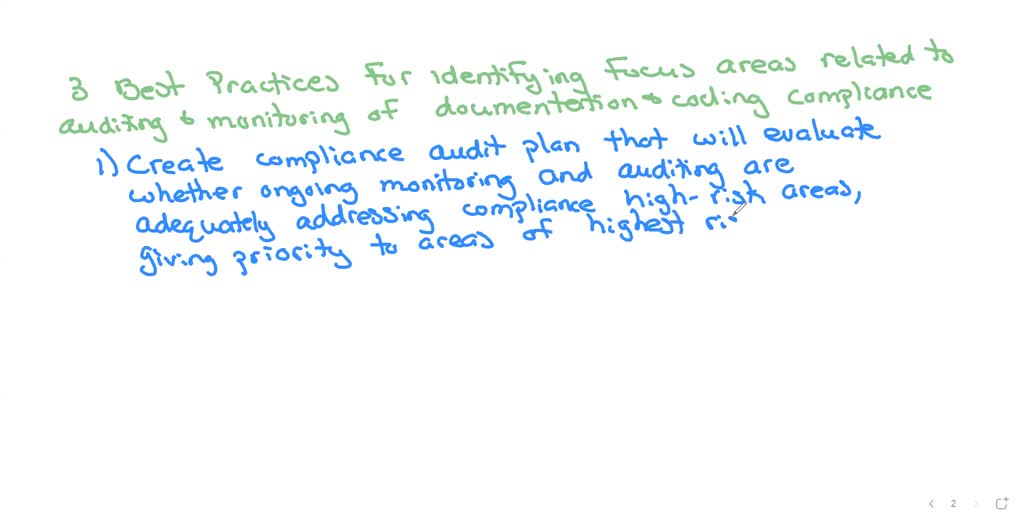 3 Best Practices for identifying focus areas related to
auditing & monitoring of doumentation & coding compliance
1) Create compliance audit plan that will evaluate
whether ongoing monitoring and auditing are
adequately addressing compliance high-risk areas,
giving priority to areas of highest ris
2